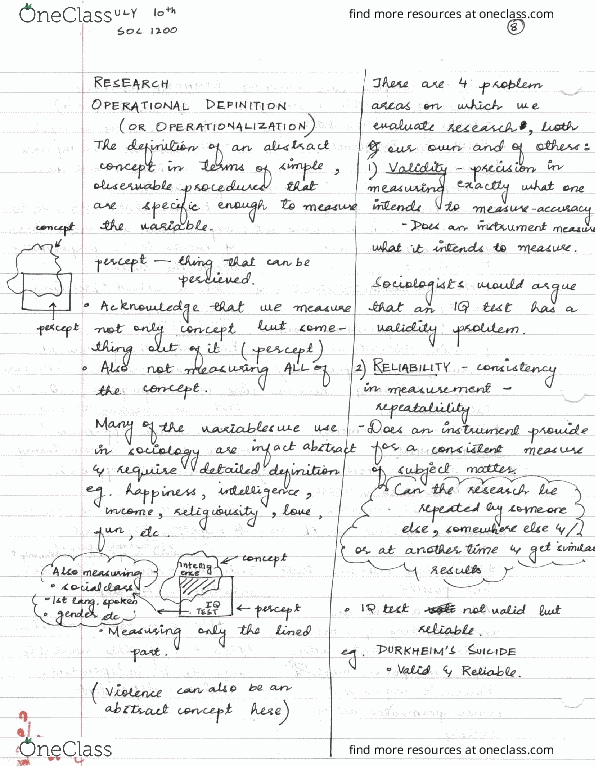 OneClass
find more resources at oneclass.com
ULY 10th
SOC 1200
8
RESEARCH
OPERATIONAL DEFINITION
(OR OPERATIONALIZATION)
The definition of an abstract
concept in terms of simple,
observable procedures that
are specific enough to measure
the variable.
concept
percept
percept — thing that can be
percieved.
• Acknowledge that we measure
not only concept but some-
thing out of it (percept)
• Also not measuring ALL of
the concept.
Many of the variables we use
in sociology are infact abstract
& require detailed definition
eg. happiness, intelligence,
income, religiousity, love,
fun, etc.
Also measuring
• social class
- 1st lang. spoken
• gender etc
Intellig
ence
IQ
TEST
concept
percept
• Measuring only the lined
part.
(Violence can also be an
abstract concept here)
There are 4 problem
areas on which we
evaluate research, both
of our own and of others:
1) Validity - precision in
measuring exactly what one
intends to measure-accuracy
- Does an instrument measure
what it intends to measure.
Sociologists would argue
that an IQ test has a
validity problem.
2) RELIABILITY - consistency
in measurement -
repeatability
- Does an instrument provide
for a consistent measure
of subject matter.
Can the research be
repeated by someone
else, somewhere else &/
or at another time & get similar
results
• IQ test not valid but
reliable.
eg. DURKHEIM'S SUICIDE
• Valid & Reliable.
OneClass
find more resources at oneclass.com